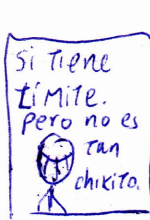 Si Tiene
LíMiTe.
Pero no es
Tan
chikiTo.